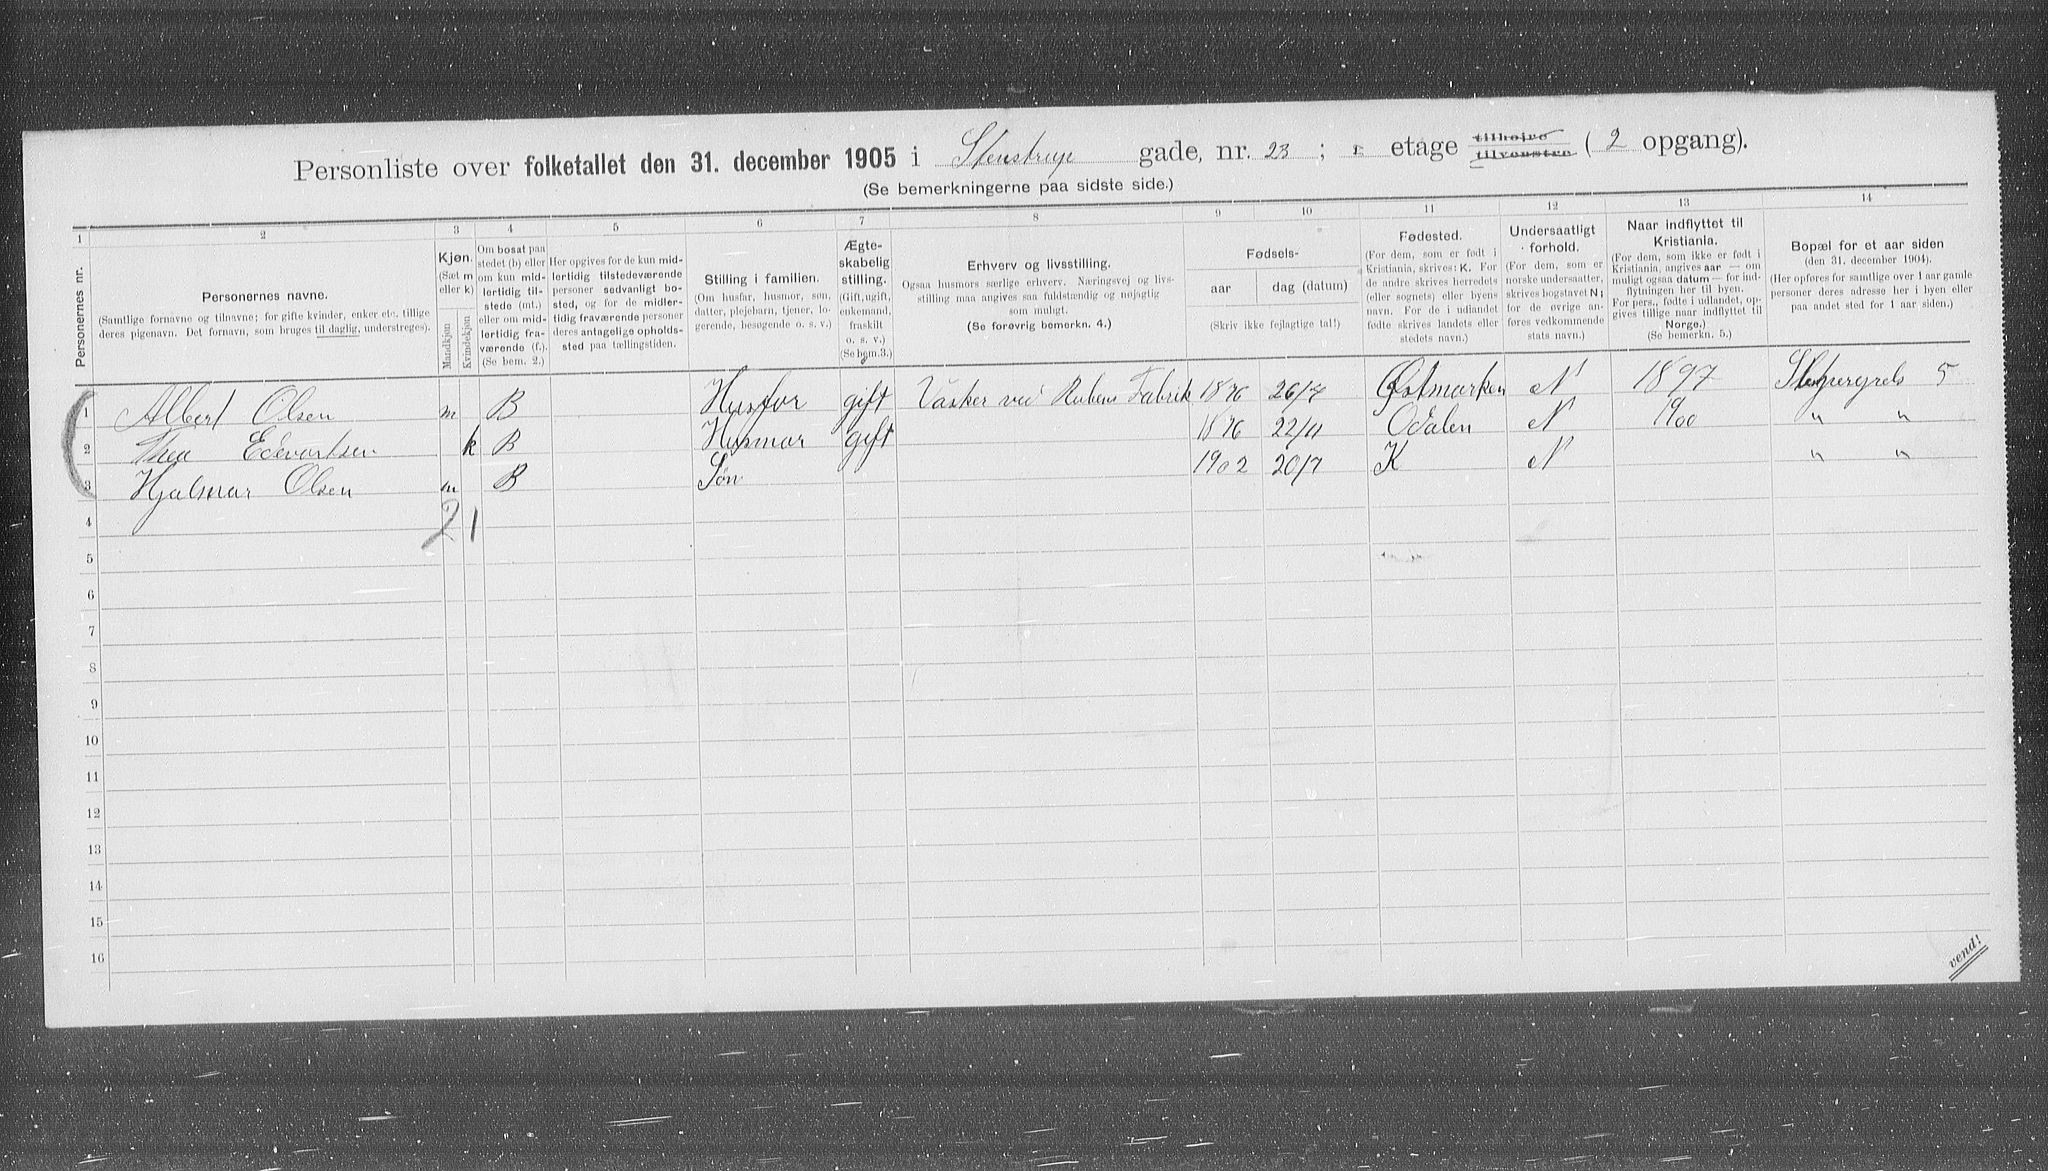 Personliste over folketallet den 31. december 1905 i Stenstrupe gade, nr. 23 ; 1 etage tilhøire tilvenstre ( 2 opgang).
(Se bemerkningerne paa sidste side.)
1 2 3 4 5 6 7 8 9 10 11 12 13 14
Personernes nr.
Personernes navne.
(Samtlige fornavne og tilnavne; for gifte kvinder, enker etc. tillige
deres pigenavn. Det fornavn, som bruges til daglig, understreges).
Kjøn.
(Sæt m
eller k)
Mandkjøn
Kvindekjøn
Om bosat paa
stedet (b) eller
om kun mid-
lertidig til-
stede (mt.)
eller om mid-
lertidig fra-
værende (f.).
(Se bem. 2.)
Her opgives for de kun mid-
lertidig tilstedeværende
personer sedvanligt bo-
sted, og for de midler-
tidig fraværende personer
deres antagelige opholds-
sted paa tællingstiden.
Stilling i familien.
(Om husfar, husmor, søn,
datter, plejebarn, tjener, lo-
gerende, besøgende o. s. v.)
Ægte-
skabelig
stilling.
(Gift, ugift,
enkemand,
fraskilt
o. s. v.)
(Se bem.3.)
Erhverv og livsstilling.
Ogsaa husmors særlige erhverv. Næringsvej og livs-
stilling maa angives saa fuldstændig og nøjagtig
som muligt.
(Se forøvrig bemerkn. 4.)
Fødsels-
aar dag (datum)
(Skriv ikke fejlagtige tal!)
Fødested.
(For dem, som er født i
Kristiania, skrives: K. For
de andre skrives herredets
(eller sognets) eller byens
navn. For de i udlandet
fødte skrives landets eller
stedets navn.)
Undersaatligt
forhold.
(For dem, som er
norske undersaatter,
skrives bogstavet N;
for de øvrige an-
føres vedkommende
stats navn.)
Naar indflyttet til
Kristiania.
(For dem, som ikke er født i
Kristiania, angives aar — om
muligt ogsaa datum — for ind-
flytningen her til byen.
For pers., fødte i udlandet, op-
gives tillige naar indflyttet til
Norge.)
(Se bemerkn. 5.)
Bopæl for et aar siden
(den 31. december 1904).
(Her opføres for samtlige over 1 aar gamle
personer deres adresse her i byen eller
paa andet sted for 1 aar siden.)
1 Albert Olsen m B Husfar gift Vasker ved Rubens Fabrik 1876 26/7 Østmarken N 1897 5
2 Thea Edevartsen k B Husmor gift 1876 22/11 Odalen N 1900 " "
3 Hjalmar Olsen m B Søn 1902 20/7 K N " "
4 2 1
5
6
7
8
9
10
11
12
13
14
15
16
vend!